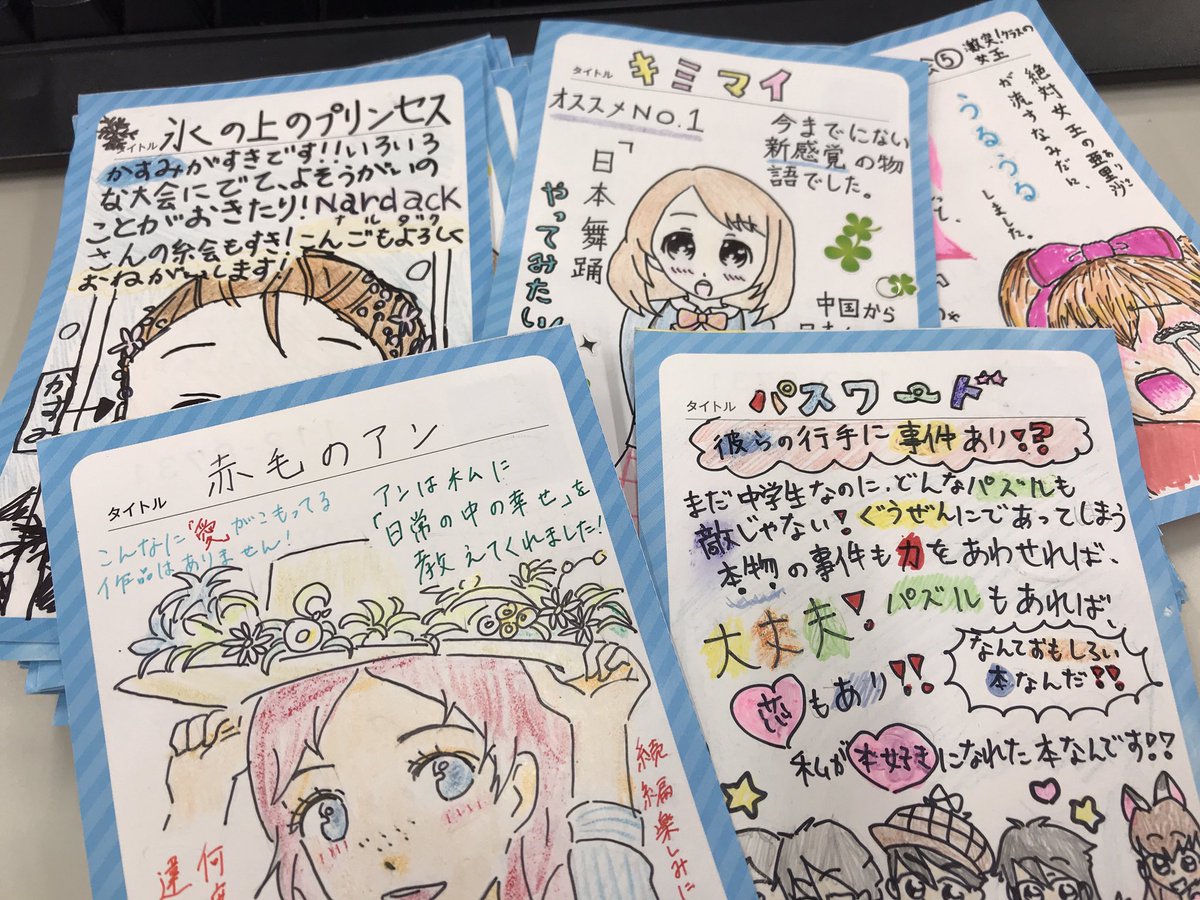 タイトル
氷の上のプリンセス
かすみがすきです!!いろいろ
な大会にでて、よそうがいの
ことがおきたり!Nardack
ナルダク
さんの糸会もすき!こんごもよろしく
おねがいします!
かすみ
タイトル
キミマイ
オススメNO.1
今までにない
新感覚の物
語でした。
「日本舞踊
やってみたい
中国から
⑤激突!クラスの
女王
絶対女王の亜里沙
が流すなみだに、
うるうる
しました。
タイトル
赤毛のアン
こんなに「愛」がこもってる
作品はありません!
アンは私に
「日常の中の幸せ」を
教えてくれました!
続編楽しみに
何
タイトル
パスワード
彼らの行手に事件あり!?
まだ中学生なのに、どんなパズルも
敵じゃない!ぐうぜんにであってしまう
本物の事件も力をあわせれば、
大丈夫!パズルもあれば、
恋もあり!!
なんておもしろい
本なんだ!!
私が本好きになれた本なんです!?